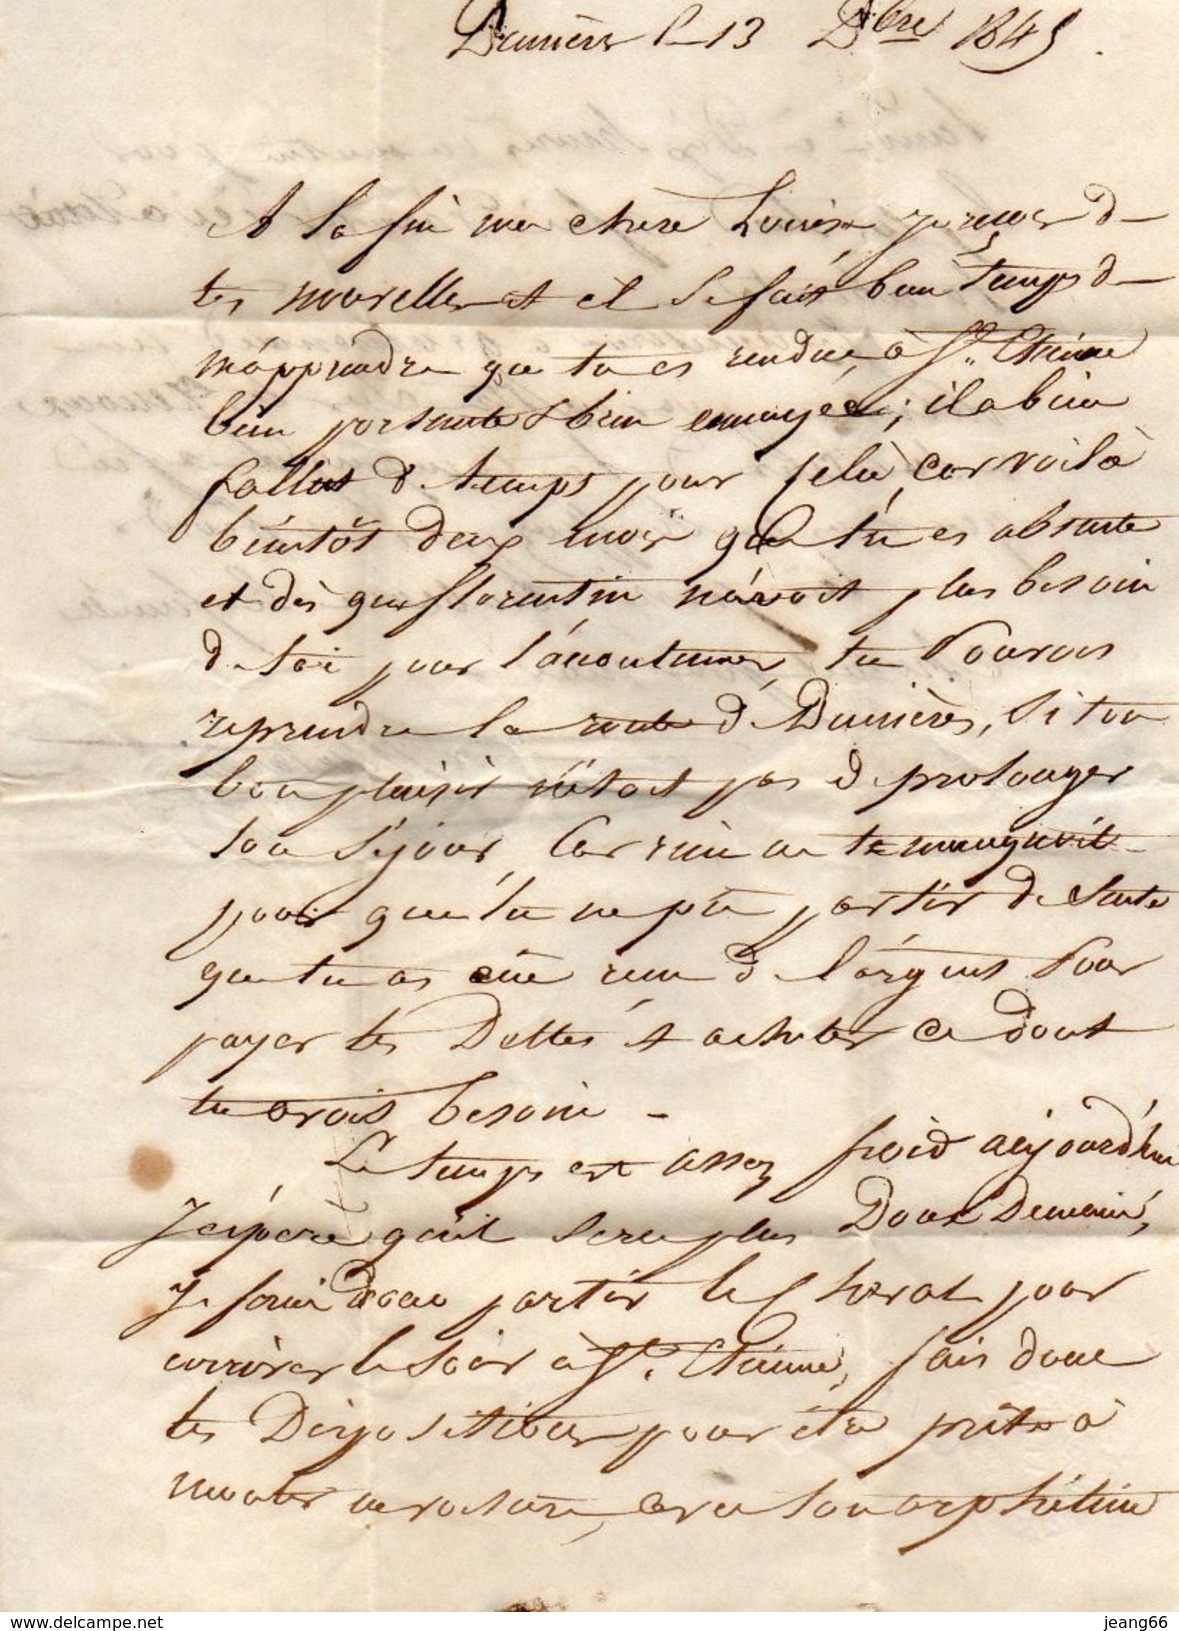 Dunières le 13 Dbre 1845.
A la fin ma chere Louise je reçois de
tes nouvelles et il se fait bien temps de
m'apprendre que tu es rendue à St. Etienne
bien portante & bien ennuyée; il a bien
fallut de temps pour selà, car voilà
bientôt deux mois que tu es absente
et dès que florentin n'avoit plus besoin
de toi pour l'acoutumer, tu Pouvois
reprendre la route de Dunières, si ton
bon plaisir n'étoit pas de prolonger
ton séjour, Car rien ne te manquoit
pour que tu ne pu partir de suite
que tu as eüe reçu de l'argent Pour
payer tes Dettes et acheter ce dont
tu avois besoin -
Le temps est assez froid aujourd'hui
J'espère qu'il sera plus Doux Demain,
Je ferai donc partir le cheval pour
arriver le soir à St. Etienne, fais donc
tes Dispositions pour être prête à
monter en voiture, avec ton orpheline
delcampe.net
jeang66